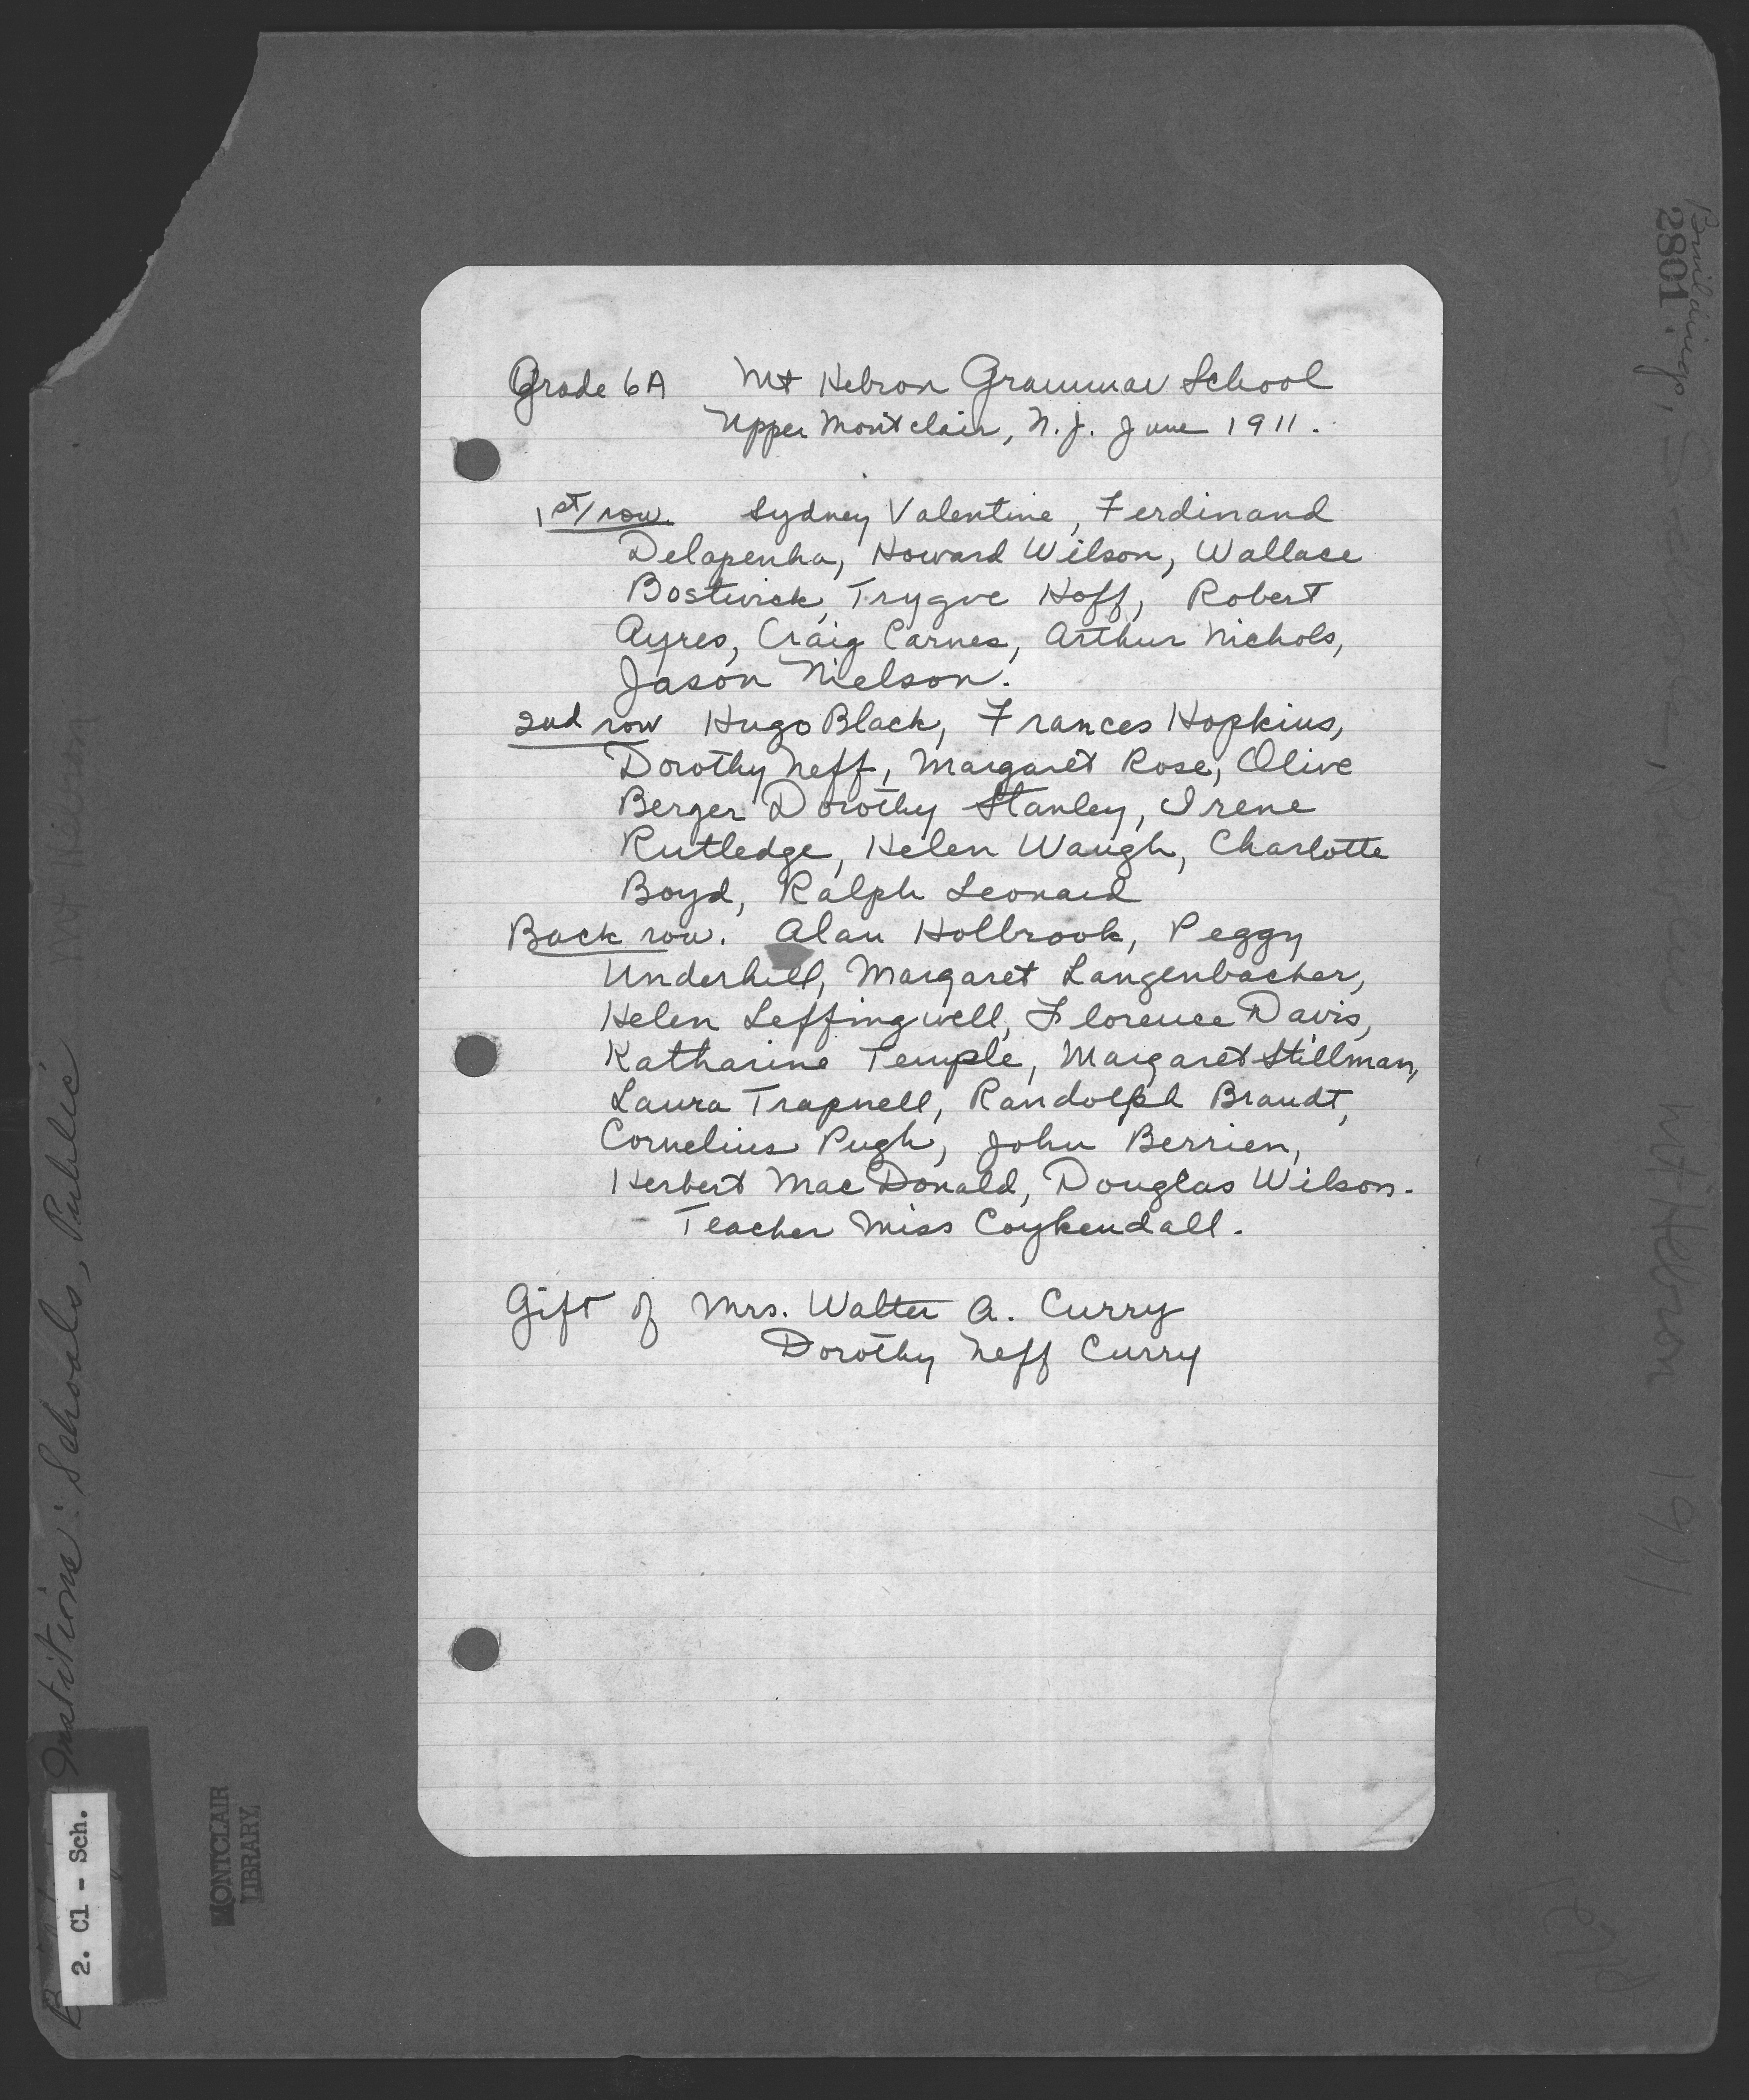 Grade 6A Mt Hebron Grammar School
Upper Montclair, N.J. June 1911.
1st/row. Sydney Valentine, Ferdinand
Delapenha, Howard Wilson, Wallace
Bostwick, Trygve Hoff, Robert
Ayres, Craig Carnes, Arthur Nichols,
Jason Nielson.
2nd row Hugo Black, Frances Hopkins,
Dorothy Neff, Margaret Rose, Olive
Berger Dorothy Stanley, Irene
Rutledge, Helen Waugh, Charlotte
Boyd, Ralph Leonard
Back row. Alan Holbrook, Peggy
Underhill, Margaret Langenbacher,
Helen Leffingwell, Florence Davis,
Katharine Temple, Margaret Stillman,
Laura Trapnell, Randolph Brandt,
Cornelius Pugh, John Berrien,
Herbert MacDonald, Douglas Wilson.
- Teacher Miss Coykendall.
Gift of Mrs. Walter A. Curry
Dorothy Neff Curry
Institutions: Schools, Public Mt Hebron
2. Cl - Sch.
MONTCLAIR
LIBRARY
Buildings,
2801
Mt Hebron 1911